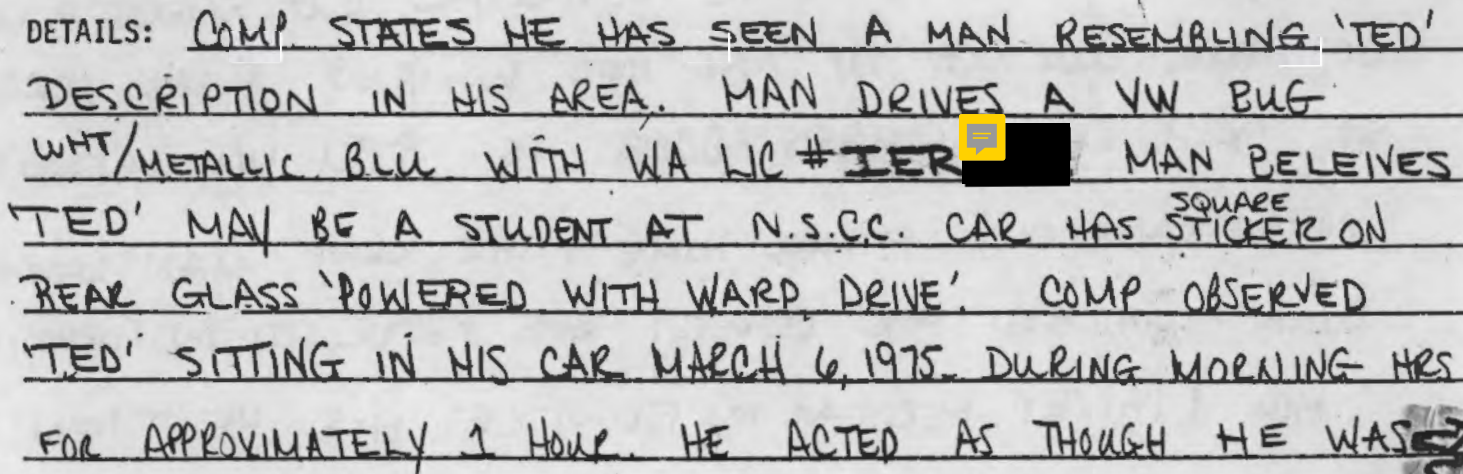 DETAILS: COMP. STATES HE HAS SEEN A MAN RESEMBLING 'TED'
DESCRIPTION IN HIS AREA. MAN DRIVES A VW BUG
WHT/METALLIC BLU WITH WA LIC #IER MAN BELEIVES
'TED' MAY BE A STUDENT AT N.S.C.C. CAR HAS SQUARE STICKER ON
REAR GLASS 'POWERED WITH WARP DRIVE'. COMP OBSERVED
'TED' SITTING IN HIS CAR MARCH 6, 1975 DURING MORNING HRS
FOR APPROXIMATELY 1 HOUR. HE ACTED AS THOUGH HE WAS